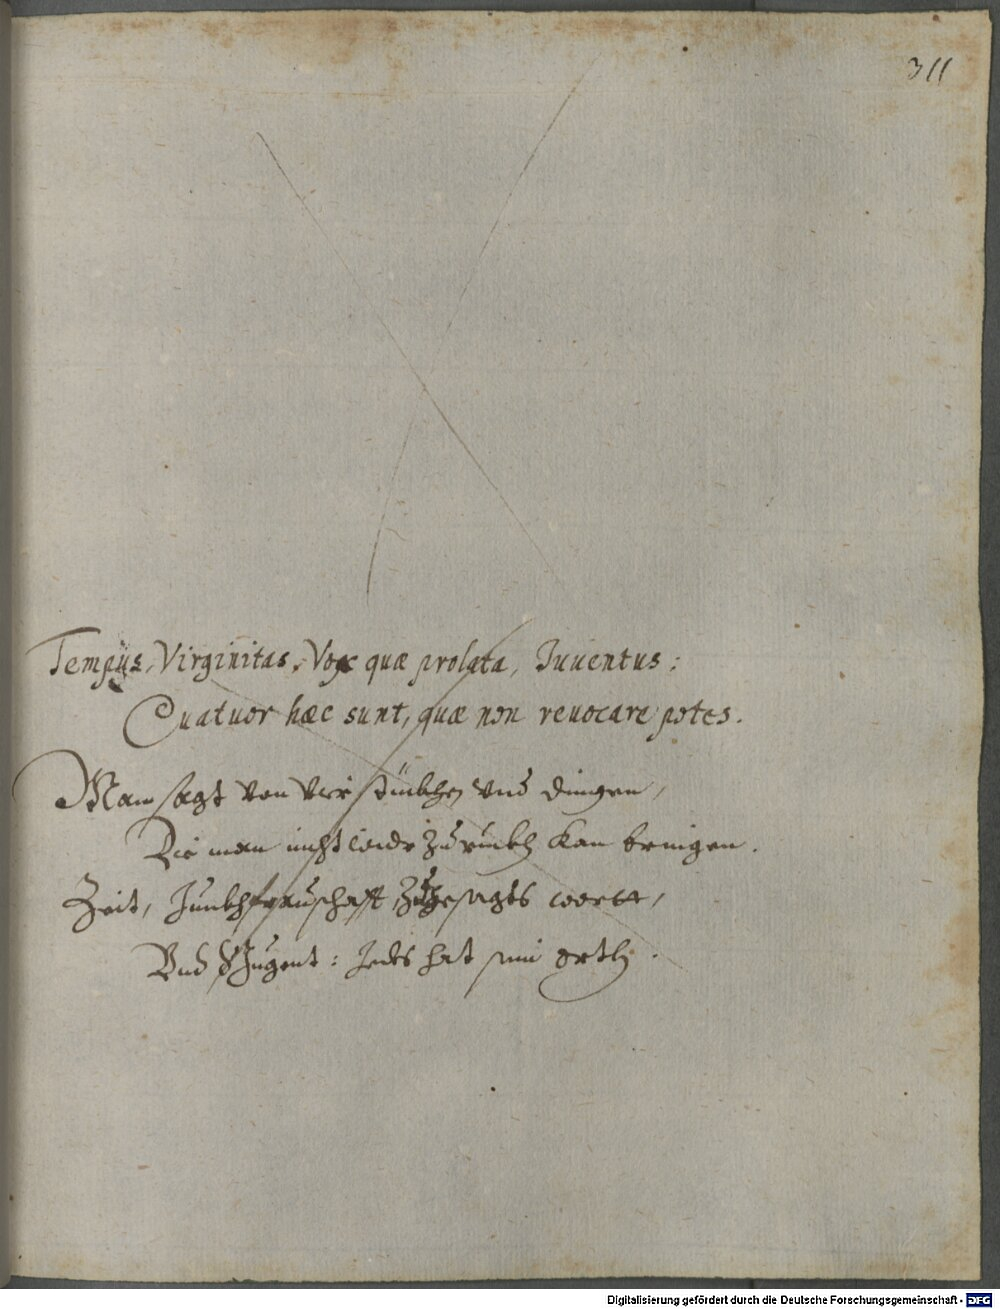 311
Tempus, Virginitas, Vox quæ prolata, Iuuentus:
Quatuor hæc sunt, quæ non reuocare potes.
Man sagt von vier stückhen vnd dingen,
Die man nicht wider zu rückh kan bringen.
Zeit, Junckhfrauschafft, Zugesagts wortt,
Vnd Jugent: Jedes hat sein orth.
Digitalisierung gefördert durch die Deutsche Forschungsgemeinschaft - DFG